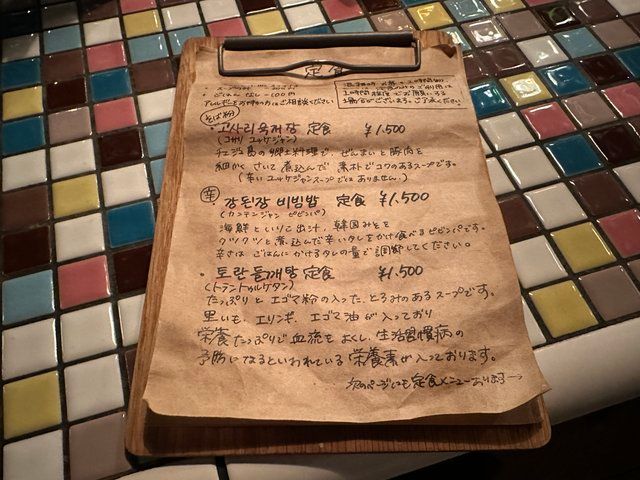 定食
ごはん なし -100円
アレルギーをお持ちの方はご相談ください
そば粉
・고사리 육개장 定食 ¥1,500
(コサリ ユッケジャン)
チェジュ島の郷土料理で、ぜんまいと豚肉を
細かくさいて煮込んだ 素朴でコクのあるスープです。
(辛いユッケジャンスープではありません。)
辛 강된장 비빔밥 定食 ¥1,500
(カンテンジャン ビビンパ)
海鮮といりこ出汁、韓国みそを
グツグツと煮込んだ辛いタレをかけ食べるビビンパです。
辛さは、ごはんにかけるタレの量で調節してください。
・토란들깨탕 定食 ¥1,500
(トランドゥルケタン)
たっぷりとエゴマ粉の入った、とろみのあるスープです。
里いも、エリンギ、エゴマ油が入っており
栄養たっぷりで血流をよくし、生活習慣病の
予防になるといわれている栄養素が入っております。
次のページにも定食メニューあります→